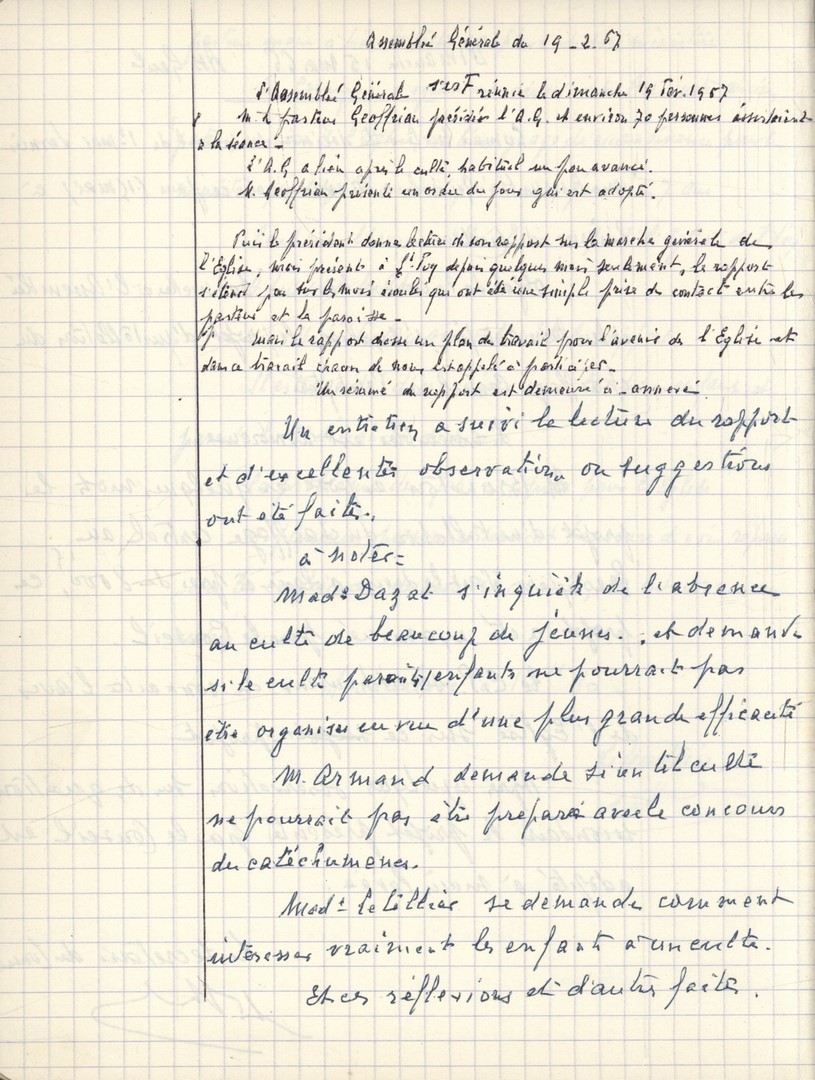 Assemblée Générale du 19-2-67
L'Assemblée Générale s'est réunie le dimanche 19 Fév. 1967
M. le pasteur Geoffrian présidée l'A.G. et environ 70 personnes assistaient
à la séance -
L'A.G. a lieu après le culte, habituel un peu avancé.
M. Geoffrian présente un ordre du jour qui est adopté.
Puis le président donne lecture de son rapport sur la marche générale de
l'Eglise, mais présent à depuis quelques mois seulement, le rapport
s'étend peu sur les mois écoulés qui ont été une simple prise de contact entre le
pasteur et la paroisse -
mais le rapport dresse un plan de travail pour l'avenir de l'Eglise et
dans ce travail chacun de nous est appelé à participer -
Un résumé du rapport est demeuré ci-annexé
Un entretien a suivi la lecture du rapport
et d'excellentes observations ou suggestions
ont été faites.
à noter =
Made Dazat s'inquiète de l'absence
au culte de beaucoup de jeunes. et demande
si le culte parents/enfants ne pourrait pas
être organisé en vue d'une plus grande efficacité
M. Armand demande si un tel culte
ne pourrait pas être préparé avec le concours
du catéchumènes.
Made se demande comment
intéresser vraiment les enfants à un culte.
Et ces réflexions et d'autres faites.